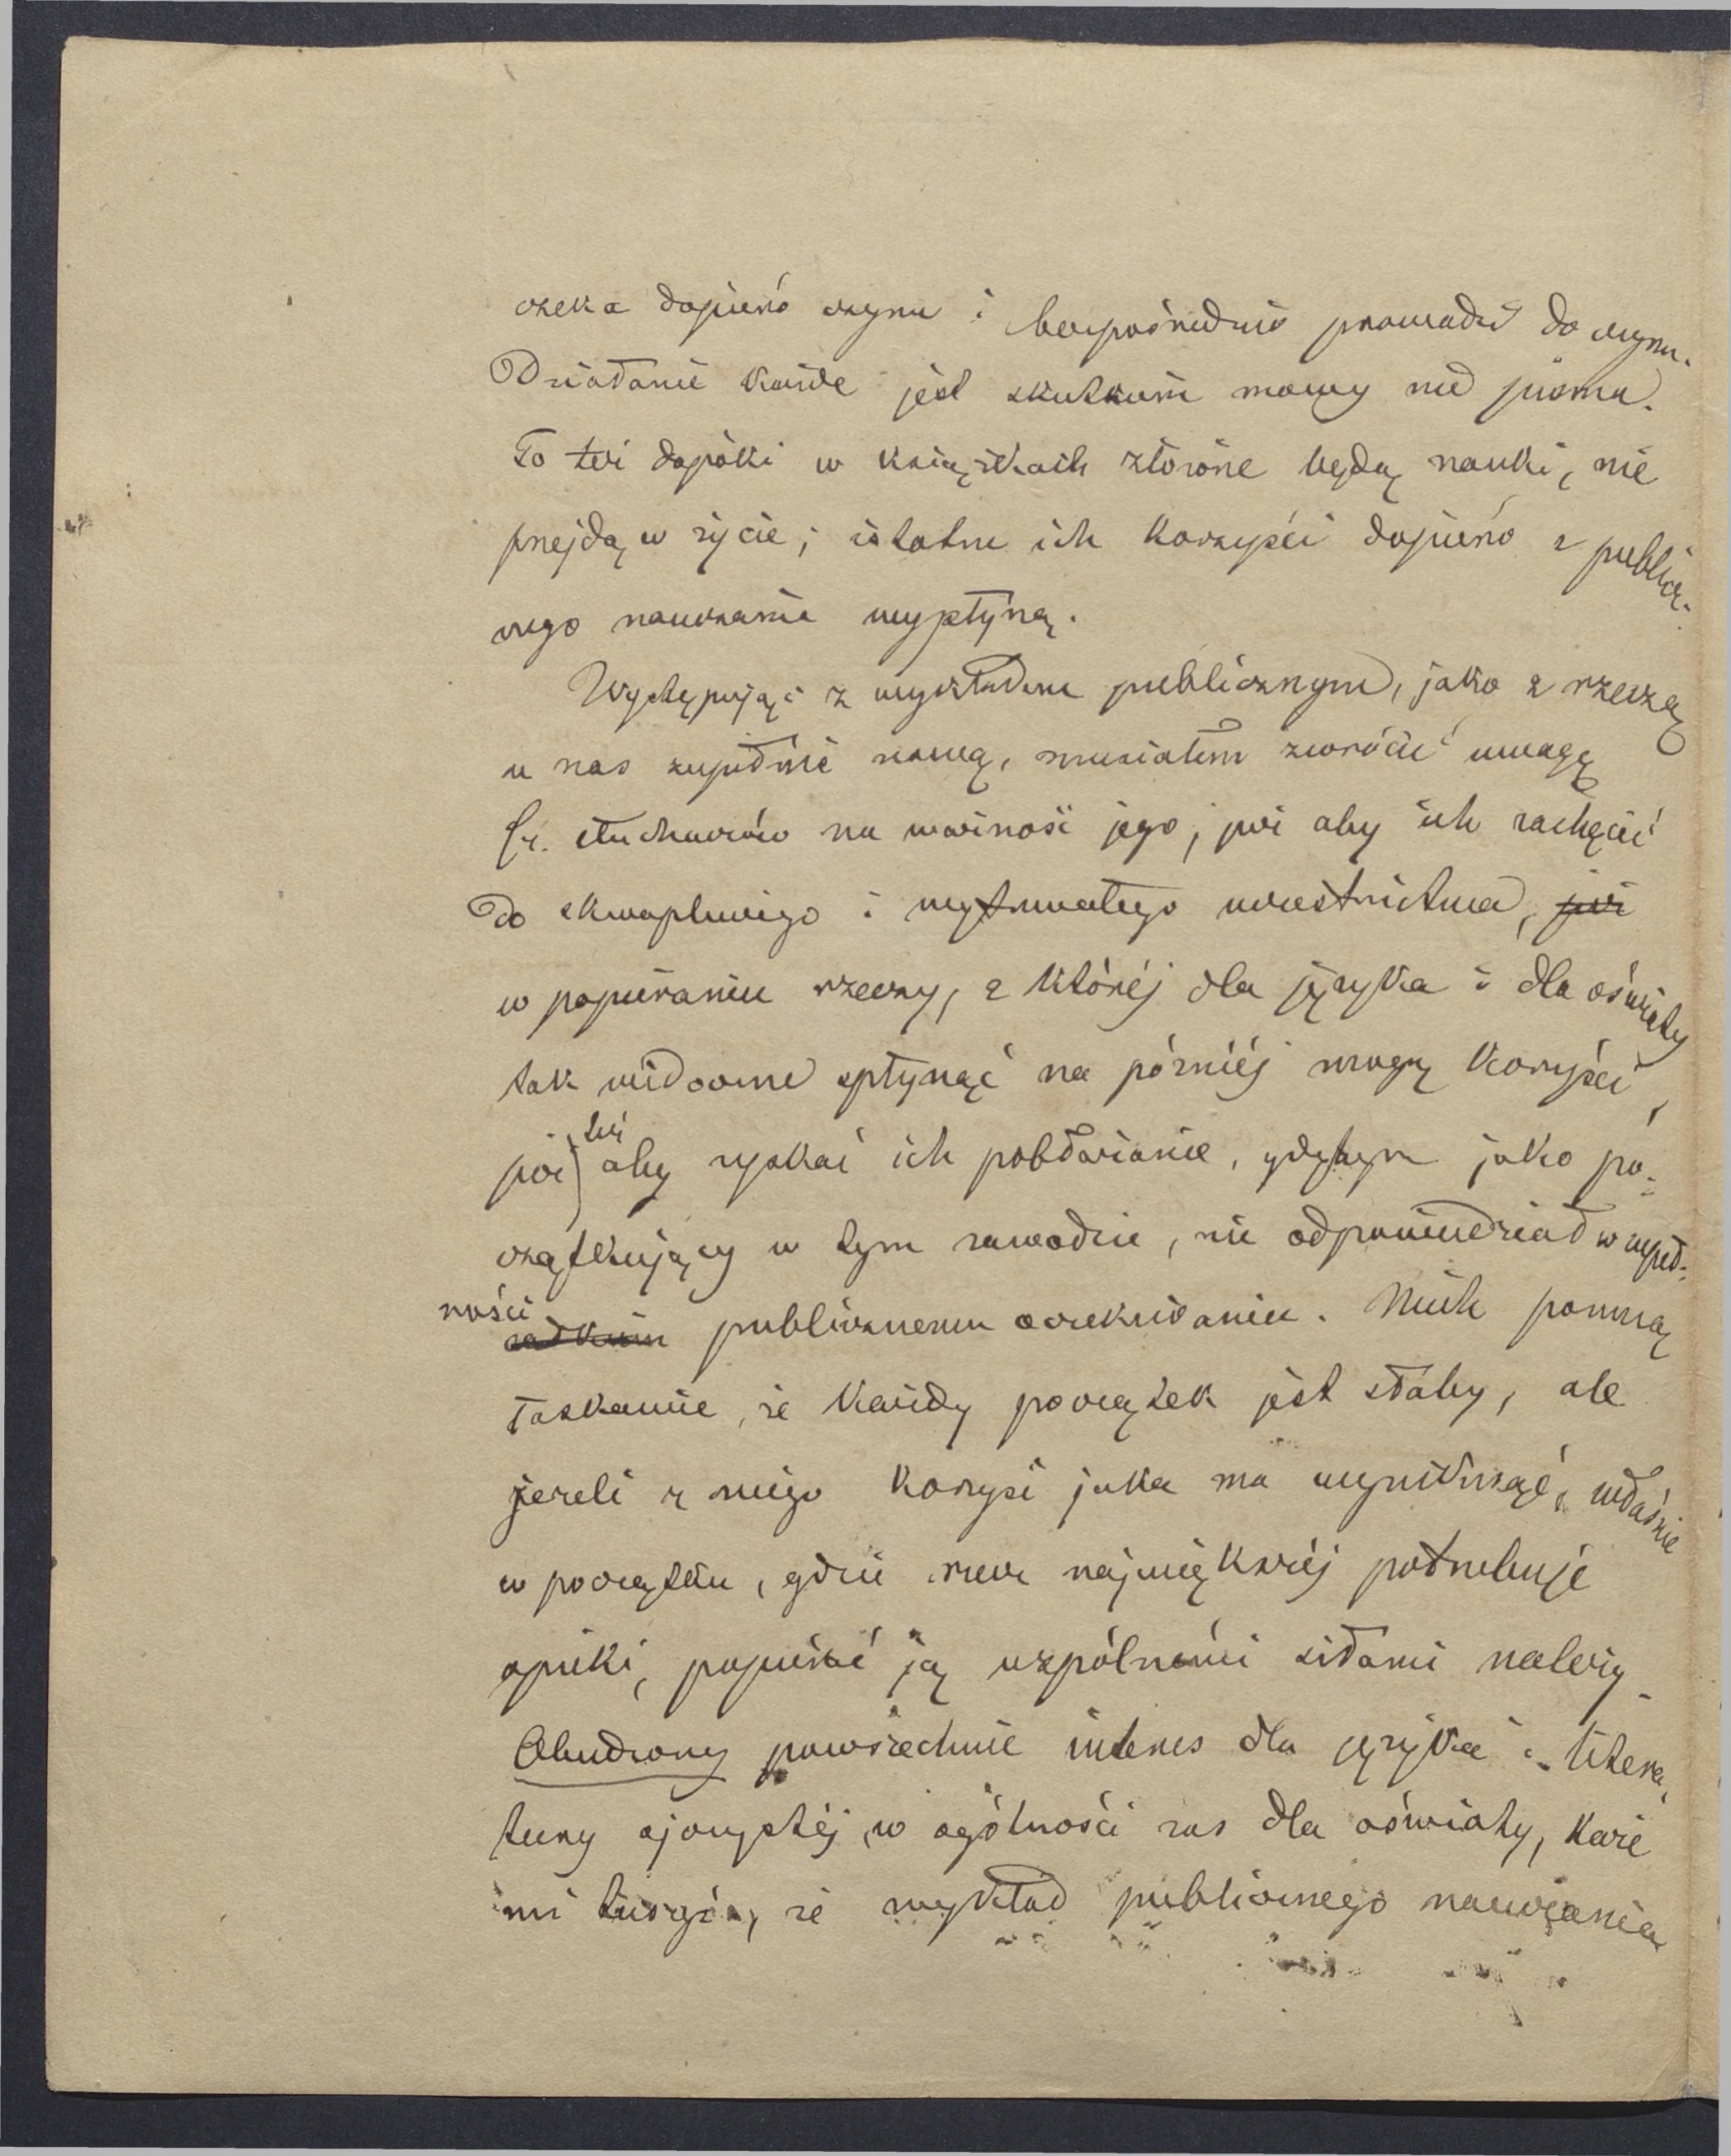 czeka dopiéro czynu i bezpośrednio prowadzi do czynu.
Działanie każde jest skutkiem mowy nie pisma.
To też dopóki w książkach złożone będą nauki, nie
przejdą w życie; istotne ich korzyści dopiéro z publicz-
nego nauczania wypłyną.
Występując z wykładem publicznym, jako z rzeczą
u nas zupełnie nową, musiałem zwrócić uwagę
Sz. słuchaczów na ważność jego; już aby ich zachęcić
do skwapliwego i wytrwałego uczestnictwa, już
w popieraniu rzeczy, z któréj dla języka i dla oświaty
tak widoczne spłynąć na późniéj mogą korzyści,
już też aby zyskać ich pobłażanie, gdybym jako po-
czątkujący w tym zawodzie, nie odpowiedział w zupeł-
ności całkiem publicznemu oczekiwaniu. Niech pomną
łaskawie, że każdy początek jest słaby, ale
jeżeli z niego korzyść jaka ma wyniknąć, właśnie
w początku, gdzie rzecz najwiękzéj potrzebuje
opieki, popiérać ją wspólnémi siłami należy.
Obudzony powszechnie interes dla języka i litera-
tury ojczystéj, w ogólności zaś dla oświaty, każe
mi tuszyć, że wykład publicznego nauczania